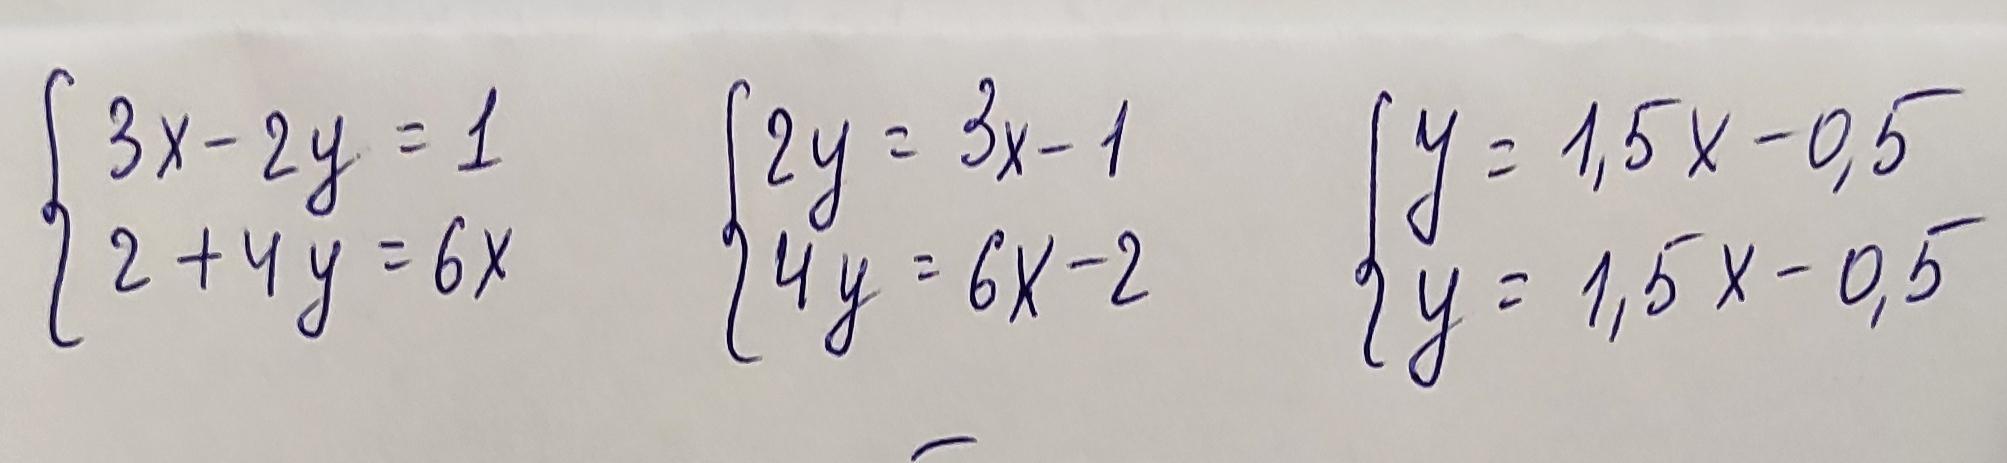 3x - 2y = 1
2 + 4y = 6x
2y = 3x - 1
4y = 6x - 2
y = 1,5x - 0,5
y = 1,5x - 0,5